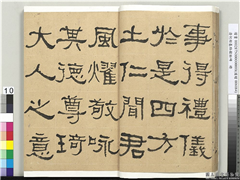 事得禮儀
於是四方
士仁聞君
風燿敬咏
其德尊琦
大人之意